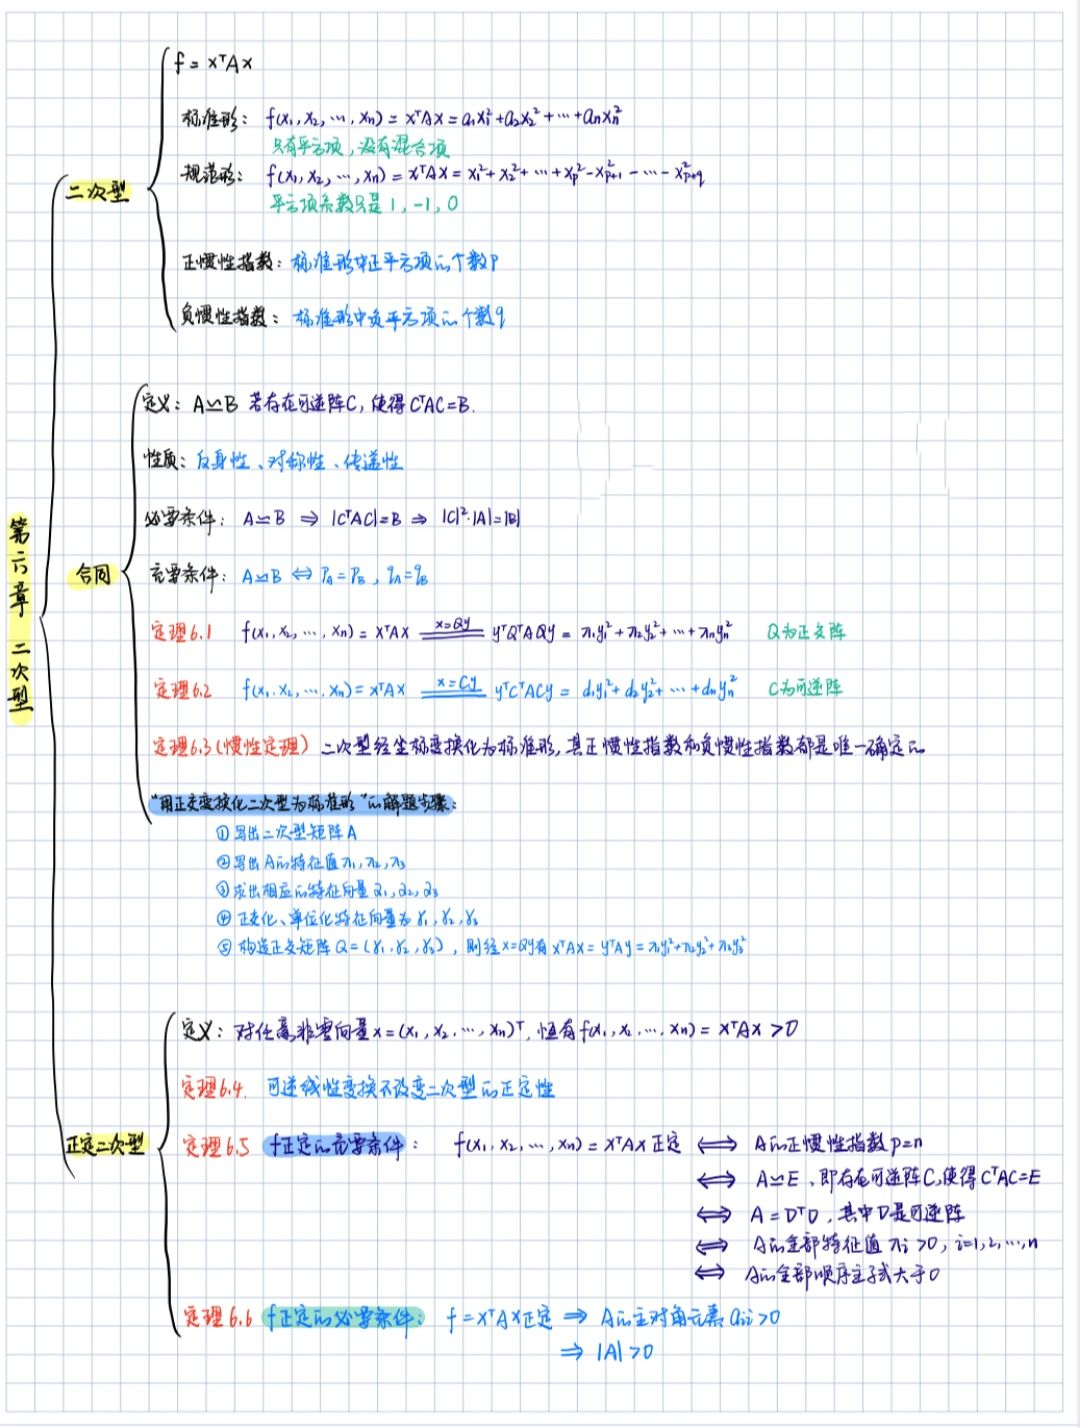 第六章 二次型
二次型
f = xᵀAx
标准形： f(x₁, x₂, ⋯, xₙ) = xᵀAx = a₁x₁² + a₂x₂² + ⋯ + aₙxₙ²
只有平方项，没有混合项
规范形： f(x₁, x₂, ⋯, xₙ) = xᵀAx = x₁² + x₂² + ⋯ + xₚ² - xₚ₊₁² - ⋯ - x²ₚ₊q
平方项系数只是 1, -1, 0
正惯性指数：标准形中正平方项的个数p
负惯性指数：标准形中负平方项的个数q
合同
定义： A≃B 若存在可逆阵C, 使得 CᵀAC=B.
性质：反身性、对称性、传递性
必要条件： A≃B ⇒ |CᵀAC|=B ⇒ |C|²·|A|=|B|
充要条件： A≃B ⇔ p_A = p_B , q_A = q_B
定理6.1 f(x₁, x₂, ⋯, xₙ) = xᵀAx x=Qy yᵀQᵀAQy = λ₁y₁² + λ₂y₂² + ⋯ + λₙyₙ² Q为正交阵
定理6.2 f(x₁, x₂, ⋯, xₙ) = xᵀAx x=Cy yᵀCᵀACy = d₁y₁² + d₂y₂² + ⋯ + dₙyₙ² C为可逆阵
定理6.3(惯性定理) 二次型经坐标变换化为标准形, 其正惯性指数和负惯性指数都是唯一确定的
“用正交变换化二次型为标准形”的解题步骤：
① 写出二次型矩阵A
② 写出A的特征值 λ₁, λ₂, λ₃
③ 求出相应的特征向量 α₁, α₂, α₃
④ 正交化、单位化特征向量为 γ₁, γ₂, γ₃
⑤ 构造正交矩阵 Q=(γ₁, γ₂, γ₃), 则经 x=Qy 有 xᵀAx = yᵀΛy = λ₁y₁² + λ₂y₂² + λ₃y₃²
正定二次型
定义：对任意非零向量 x = (x₁, x₂, ⋯, xₙ)ᵀ, 恒有 f(x₁, x₂, ⋯, xₙ) = xᵀAx > 0
定理6.4. 可逆线性变换不改变二次型的正定性
定理6.5 f正定的充要条件： f(x₁, x₂, ⋯, xₙ) = xᵀAx 正定 ⟺ A的正惯性指数 p=n
⟺ A≃E, 即存在可逆阵C,使得 CᵀAC=E
⟺ A = DᵀD, 其中D是可逆阵
⟺ A的全部特征值 λi > 0, i=1, 2, ⋯, n
⟺ A的全部顺序主子式大于0
定理6.6 f正定的必要条件： f = xᵀAx正定 ⇒ A的主对角元素 aii > 0
⇒ |A| > 0